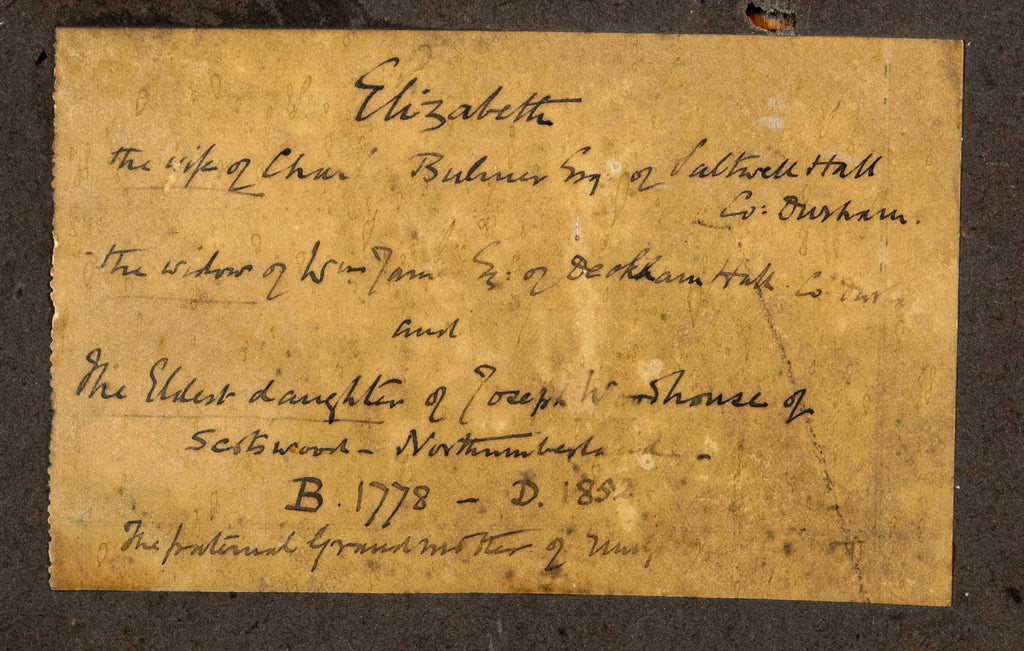 Elizabeth
the wife of Bulmer Esq. of Saltwell Hall
Co: Durham.
the widow of Wm Esq: of Deckham Hall Co
and
The Eldest daughter of Joseph of
Scotswood – Northumberland –
B. 1778 – D. 1852
The Grandmother of